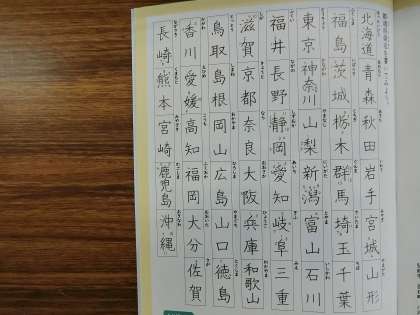 北海道 青森 秋田 岩手 宮城 山形
福島 茨城 栃木 群馬 埼玉 千葉
東京 神奈川 山梨 新潟 富山 石川
福井 長野 静岡 愛知 岐阜 三重
滋賀 京都 奈良 大阪 兵庫 和歌山
鳥取 島根 岡山 広島 山口 徳島
香川 愛媛 高知 福岡 大分 佐賀
長崎 熊本 宮崎 鹿児島 沖縄